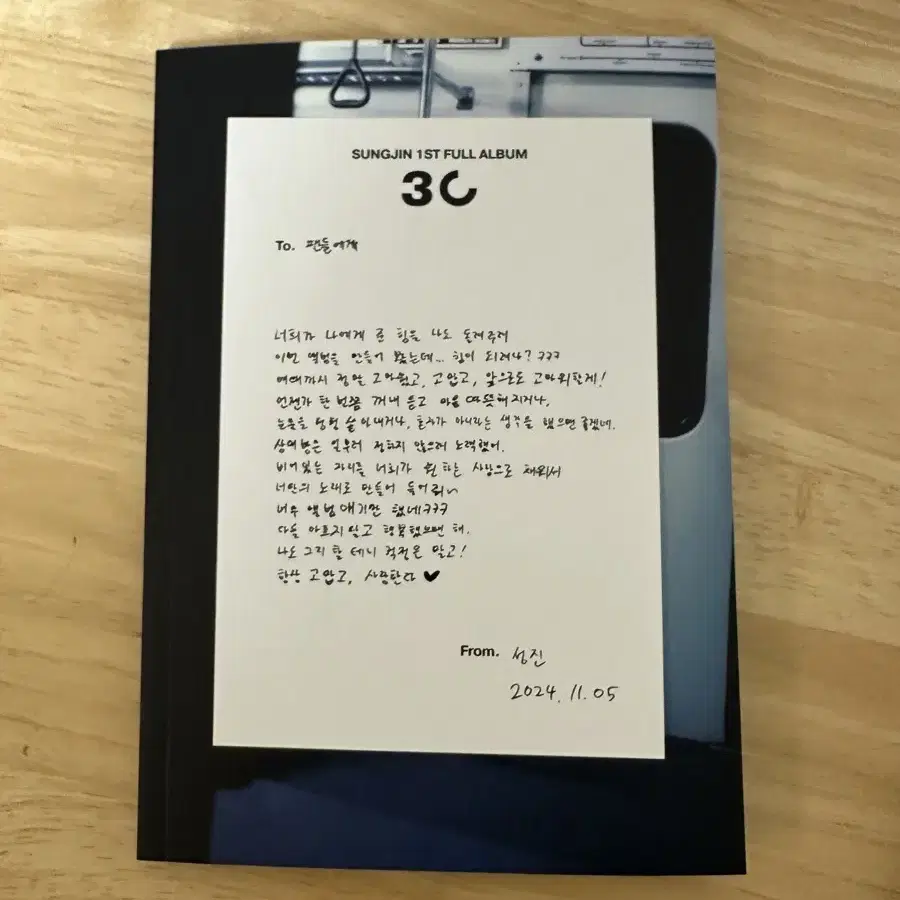 SUNGJIN 1ST FULL ALBUM
30
To. 팬들에게
너희가 나에게 준 힘을 나도 돌려주려
이번 앨범을 만들어 봤는데... 힘이 되려나? ㅋㅋㅋ
여태까지 정말 고마웠고, 고맙고, 앞으로도 고마워할게!
언젠가 한 번쯤 꺼내 듣고 마음 따뜻해지거나,
눈물을 펑펑 쏟아내거나, 혼자가 아니라는 생각을 했으면 좋겠네.
상대방은 일부러 정하지 않으려 노력했어.
비어있는 자리를 너희가 원하는 사람으로 채워서
너만의 노래로 만들어 들어줘~
너무 앨범 얘기만 했네 ㅋㅋㅋ
다들 아프지 않고 행복했으면 해.
나도 그리 할 테니 걱정은 말고!
항상 고맙고, 사랑한다 ♥
From. 성진
2024. 11. 05